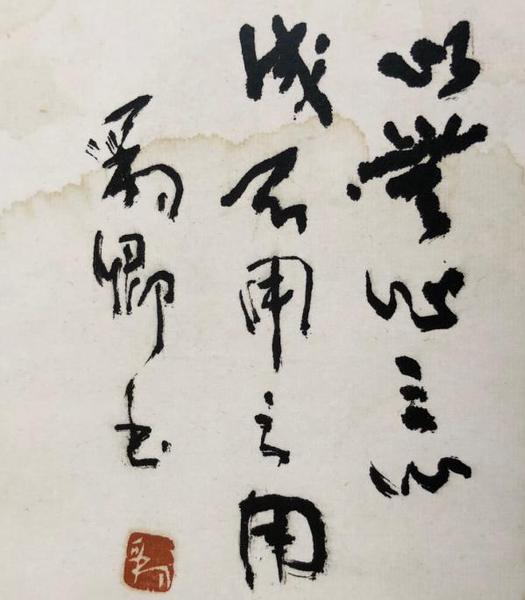 以無心之心
成不用之用
卿书